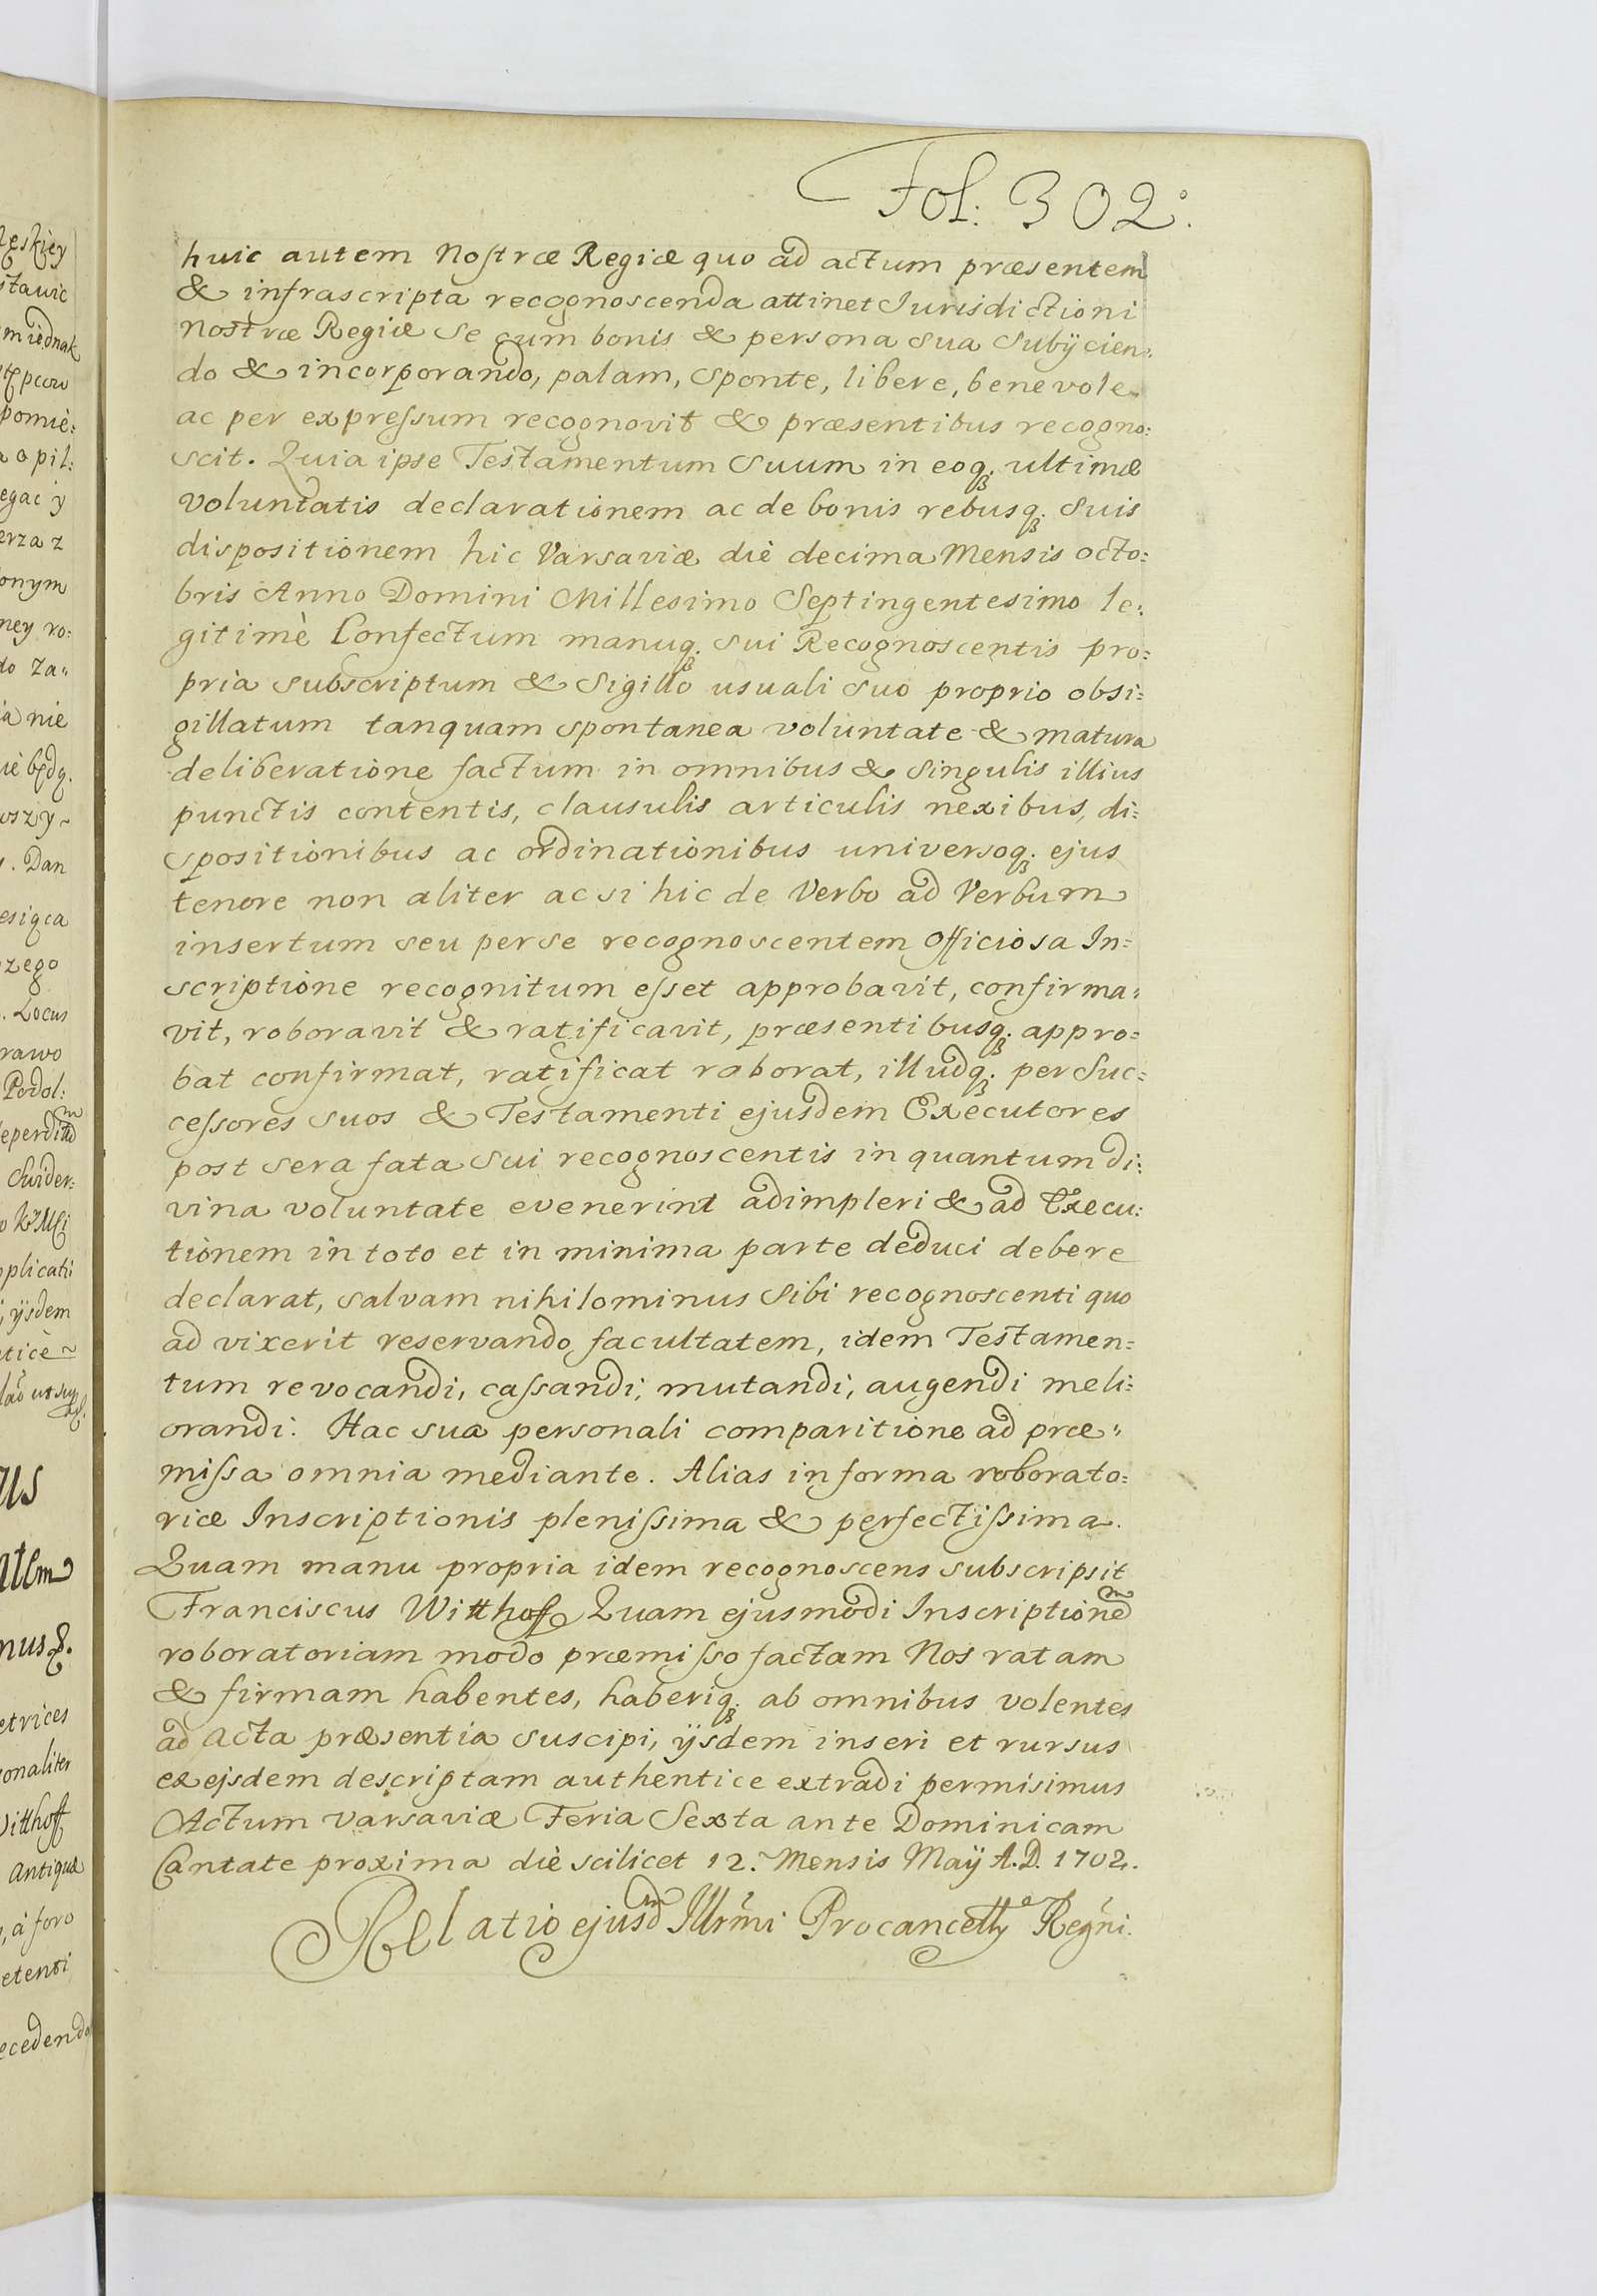 Fol: 302.
huic autem Nostræ Regiæ quo ad actum præsentem
& infrascripta recognoscenda attinet Iurisdictioni
Nostræ Regiæ se cum bonis & persona sua subÿcien:
do & incorporando, palam, sponte, libere, benevole
ac per expressum recognovit & præsentibus recogno:
scit. Quia ipse Testamentum suum in eoq₃. ultimæ
voluntatis declarationem ac de bonis rebusq₃. suis
dispositionem hic Varsaviæ die decima Mensis octo:
bris Anno Domini Millesimo Septingentesimo le:
gitimè Confectum manuq₃. sui Recognoscentis pro:
pria subscriptum & Sigillo usuali suo proprio obsi:
gillatum tanquam spontanea voluntate & matura
deliberatione factum in omnibus & singulis illius
punctis contentis, clausulis articulis nexibus, di:
spositionibus ac ordinationibus universoq₃. ejus
tenore non aliter ac si hic de Verbo ad Verbum
insertum seu per se recognoscentem Officiosa In:
scriptione recognitum esset approbavit, confirma:
vit, roboravit & ratificavit, præsentibusq₃. appro:
bat confirmat, ratificat roborat, illudq₃. per Suc:
cessores suos & Testamenti ejusdem Executores
post sera fata sui recognoscentis in quantum di:
vina voluntate evenerint adimpleri & ad Execu:
tionem in toto et in minima parte deduci debere
declarat, salvam nihilominus sibi recognoscenti quo
ad vixerit reservando facultatem, idem Testamen:
tum revocandi, cassandi, mutandi, augendi meli:
orandi. Hac sua personali comparitione ad præ:
missa omnia mediante. Alias in forma roborato:
riæ Inscriptionis plenissima & perfectissima.
Quam manu propria idem recognoscens subscripsit
Franciscus Witthoff Quam ejusmodi Inscriptionem
roboratoriam modo præmisso factam Nos ratam
& firmam habentes, haberiq₃. ab omnibus volentes
ad acta præsentia suscipi, ÿsdem inseri et rursus
ex ejsdem descriptam authentice extradi permisimus
Actum Varsaviæ Feria Sexta ante Dominicam
Cantate proxima diè scilicet 12. Mensis Maÿ A.D. 1702.
Relatio ejusdm Illrmi Procancelly Regni.